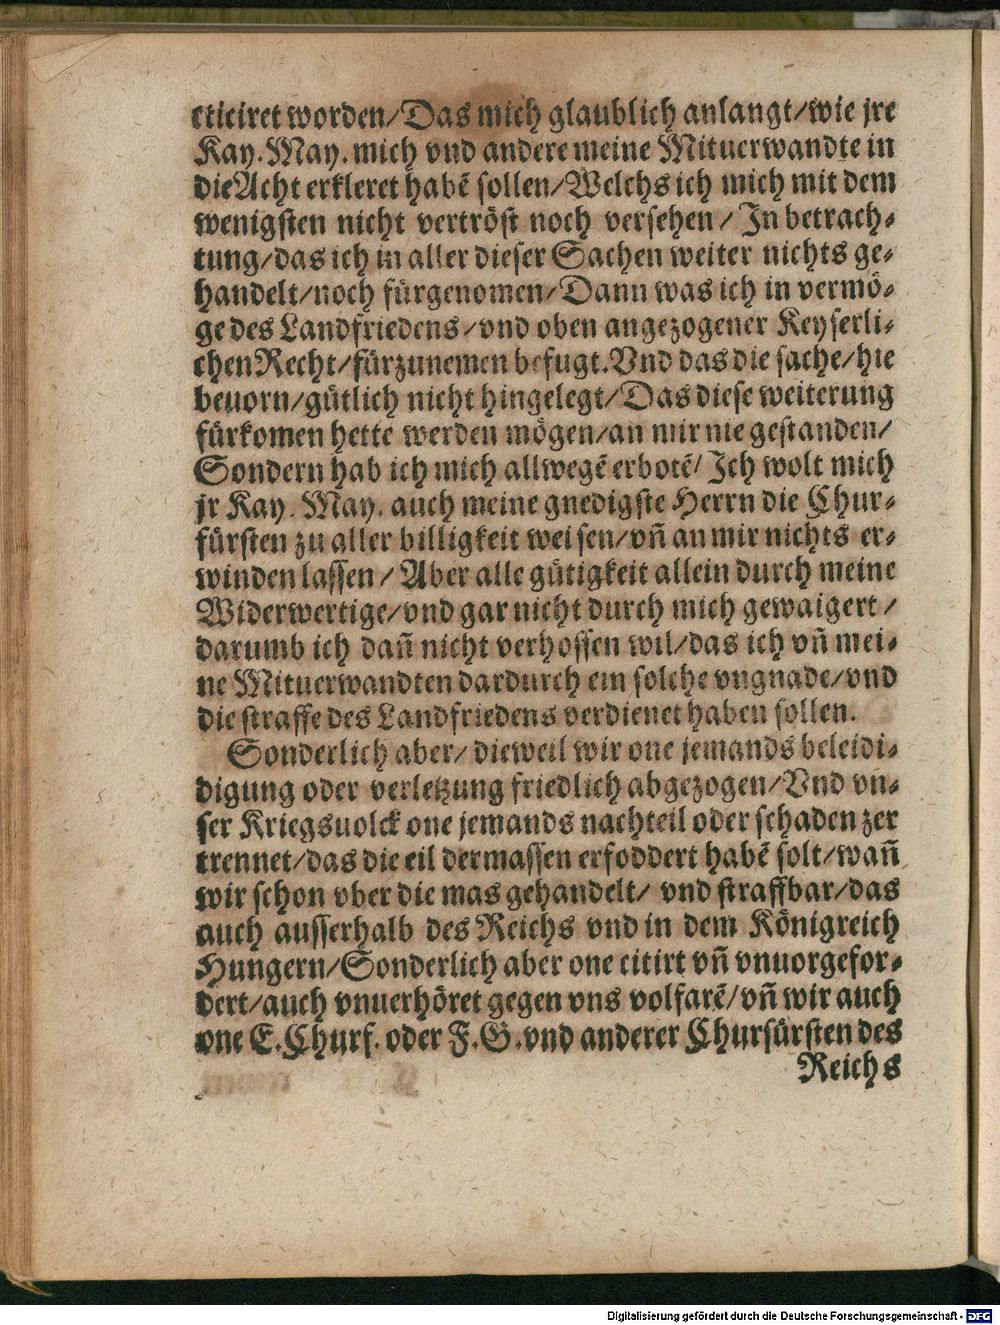 cticiret worden/Das mich glaublich anlangt/wie jre
Kay. May. mich vnd andere meine Mituerwandte in
die Acht erkleret habē sollen/Welchs ich mich mit dem
wenigsten nicht vertröst noch versehen/In betrach⸗
tung/das ich in aller dieser Sachen weiter nichts ge⸗
handelt/noch fürgenomen/Dann was ich in vermö⸗
ge des Landfriedens/vnd oben angezogener Keyserli⸗
chen Recht/fürzunemen befugt. Vnd das die sache/hie
beuorn/gütlich nicht hingelegt/Das diese weiterung
fürkomen hette werden mögen/an mir nie gestanden/
Sondern hab ich mich allwegē erbotē/Ich wolt mich
jr Kay. May. auch meine gnedigste Herrn die Chur⸗
fürsten zu aller billigkeit weisen/vn̄ an mir nichts er⸗
winden lassen/Aber alle gütigkeit allein durch meine
Widerwertige/vnd gar nicht durch mich gewaigert/
darumb ich dan̄ nicht verhoffen wil/das ich vn̄ mei⸗
ne Mituerwandten dardurch ein solche vngnade/vnd
die straffe des Landfriedens verdienet haben sollen.
Sonderlich aber/dieweil wir one jemands beleidi⸗
digung oder verletzung friedlich abgezogen/Vnd vn⸗
ser Kriegsuolck one jemands nachteil oder schaden zer
trennet/das die eil dermassen erfoddert habē solt/wan̄
wir schon vber die mas gehandelt/vnd straffbar/das
auch ausserhalb des Reichs vnd in dem Königreich
Hungern/Sonderlich aber one citirt vn̄ vnuorgefor⸗
dert/auch vnuerhöret gegen vns volfarē/vn̄ wir auch
one E. Churf. oder F. G. vnd anderer Churfürsten des
Reichs
Digitalisierung gefördert durch die Deutsche Forschungsgemeinschaft - DFG